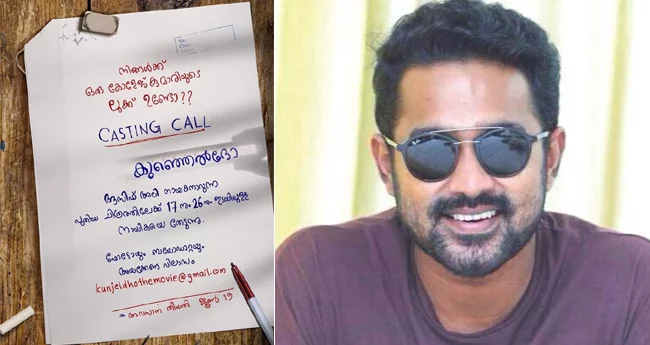 നിങ്ങൾക്ക്
ഒരു കോളേജ് കുമാരിയുടെ
ലുക്ക് ഉണ്ടോ??
CASTING CALL
കുഞ്ഞെൽദോ
ആസിഫ് അലി നായകനാവുന്ന
പുതിയ ചിത്രത്തിലേക്ക് 17 നും 26 നും ഇടയിലുള്ള
നായികയെ തേടുന്നു.
ഫോട്ടോയും ബയോഡാറ്റയും
അയക്കേണ്ട വിലാസം
kunjeldhothemovie@gmail.com
* അവസാന തീയതി ജൂൺ 19